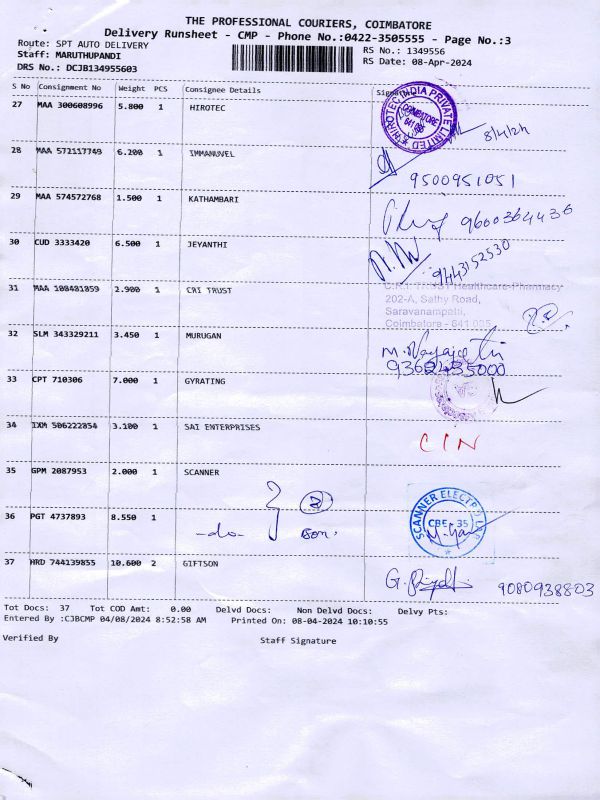 THE PROFESSIONAL COURIERS, COIMBATORE
Delivery Runsheet - CMP - Phone No.:0422-3505555 - Page No.:3
Route: SPT AUTO DELIVERY RS No.: 1349556
Staff: MARUTHUPANDI RS Date: 08-Apr-2024
DRS No.: DCJB134955603
S No Consignment No Weight PCS Consignee Details Signature
27 MAA 300608996 5.800 1 HIROTEC
HIROTEC INDIA PRIVATE LIMITED
COIMBATORE
8/4/24
28 MAA 572117749 6.200 1 IMMANUVEL
9500951051
29 MAA 574572768 1.500 1 KATHAMBARI
9600364436
30 CUD 3333420 6.500 1 JEYANTHI
9443152530
31 MAA 108481859 2.900 1 CRI TRUST
C.R.I. TRUST Healthcare Pharmacy
202-A, Sathy Road,
Saravanampatti,
Coimbatore - 641 035
32 SLM 343329211 3.450 1 MURUGAN
9362435000
33 CPT 710306 7.000 1 GYRATING
34 IXM 506222854 3.100 1 SAI ENTERPRISES
CIN
35 GPM 2087953 2.000 1 SCANNER
2
SCANNER ELECTRO
CBE - 35
36 PGT 4737893 8.550 1 -do-
37 HRD 744139855 10.600 2 GIFTSON
9080938803
Tot Docs: 37 Tot COD Amt: 0.00 Delvd Docs: Non Delvd Docs: Delvy Pts:
Entered By :CJBCMP 04/08/2024 8:52:58 AM Printed On: 08-04-2024 10:10:55
Verified By Staff Signature